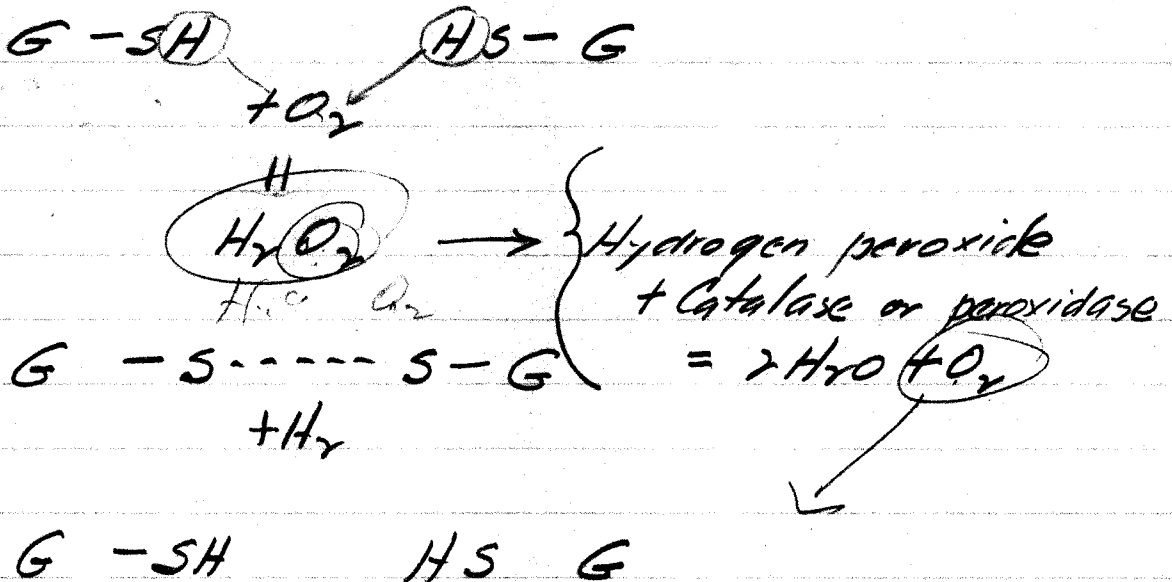 G - SH HS - G
+ O2
"
H2O2 → { Hydrogen peroxide
+ Catalase or peroxidase
G - S ----- S - G = 2H2O + O2
+ H2
G - SH HS G